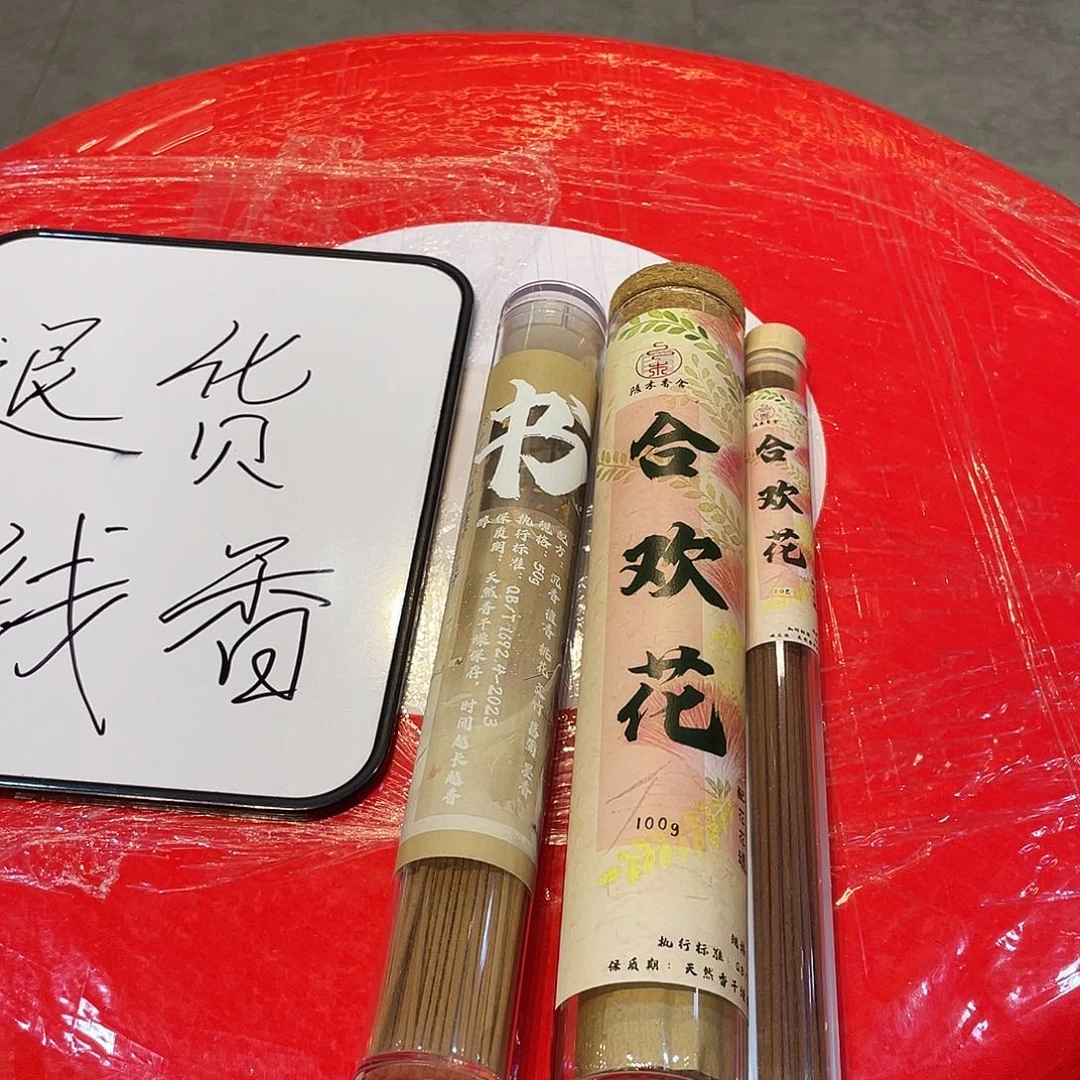 退货
线香
书
配方：沉香 檀香 桃花 文竹 菖蒲 墨香
规格：50g
执行标准：QB/T1692.4-2023
保质期：天然香干燥保存，时间越长越香
陆木香舍
合欢花
100g
执行标准：QB
保质期：天然香干燥
合欢花
20g